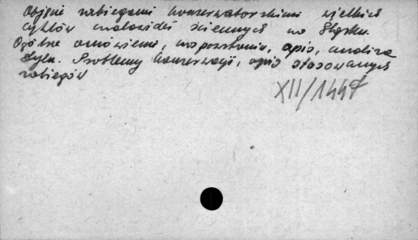 Objęcie zabiegami konserwatorskimi wielkich
cyklów malowideł ściennych na Śląsku.
Ogólne omówienie, wyposażenie, opis, analiza
stylu. Problemy konserwacji, opis stosowanych
zabiegów
XII/1447